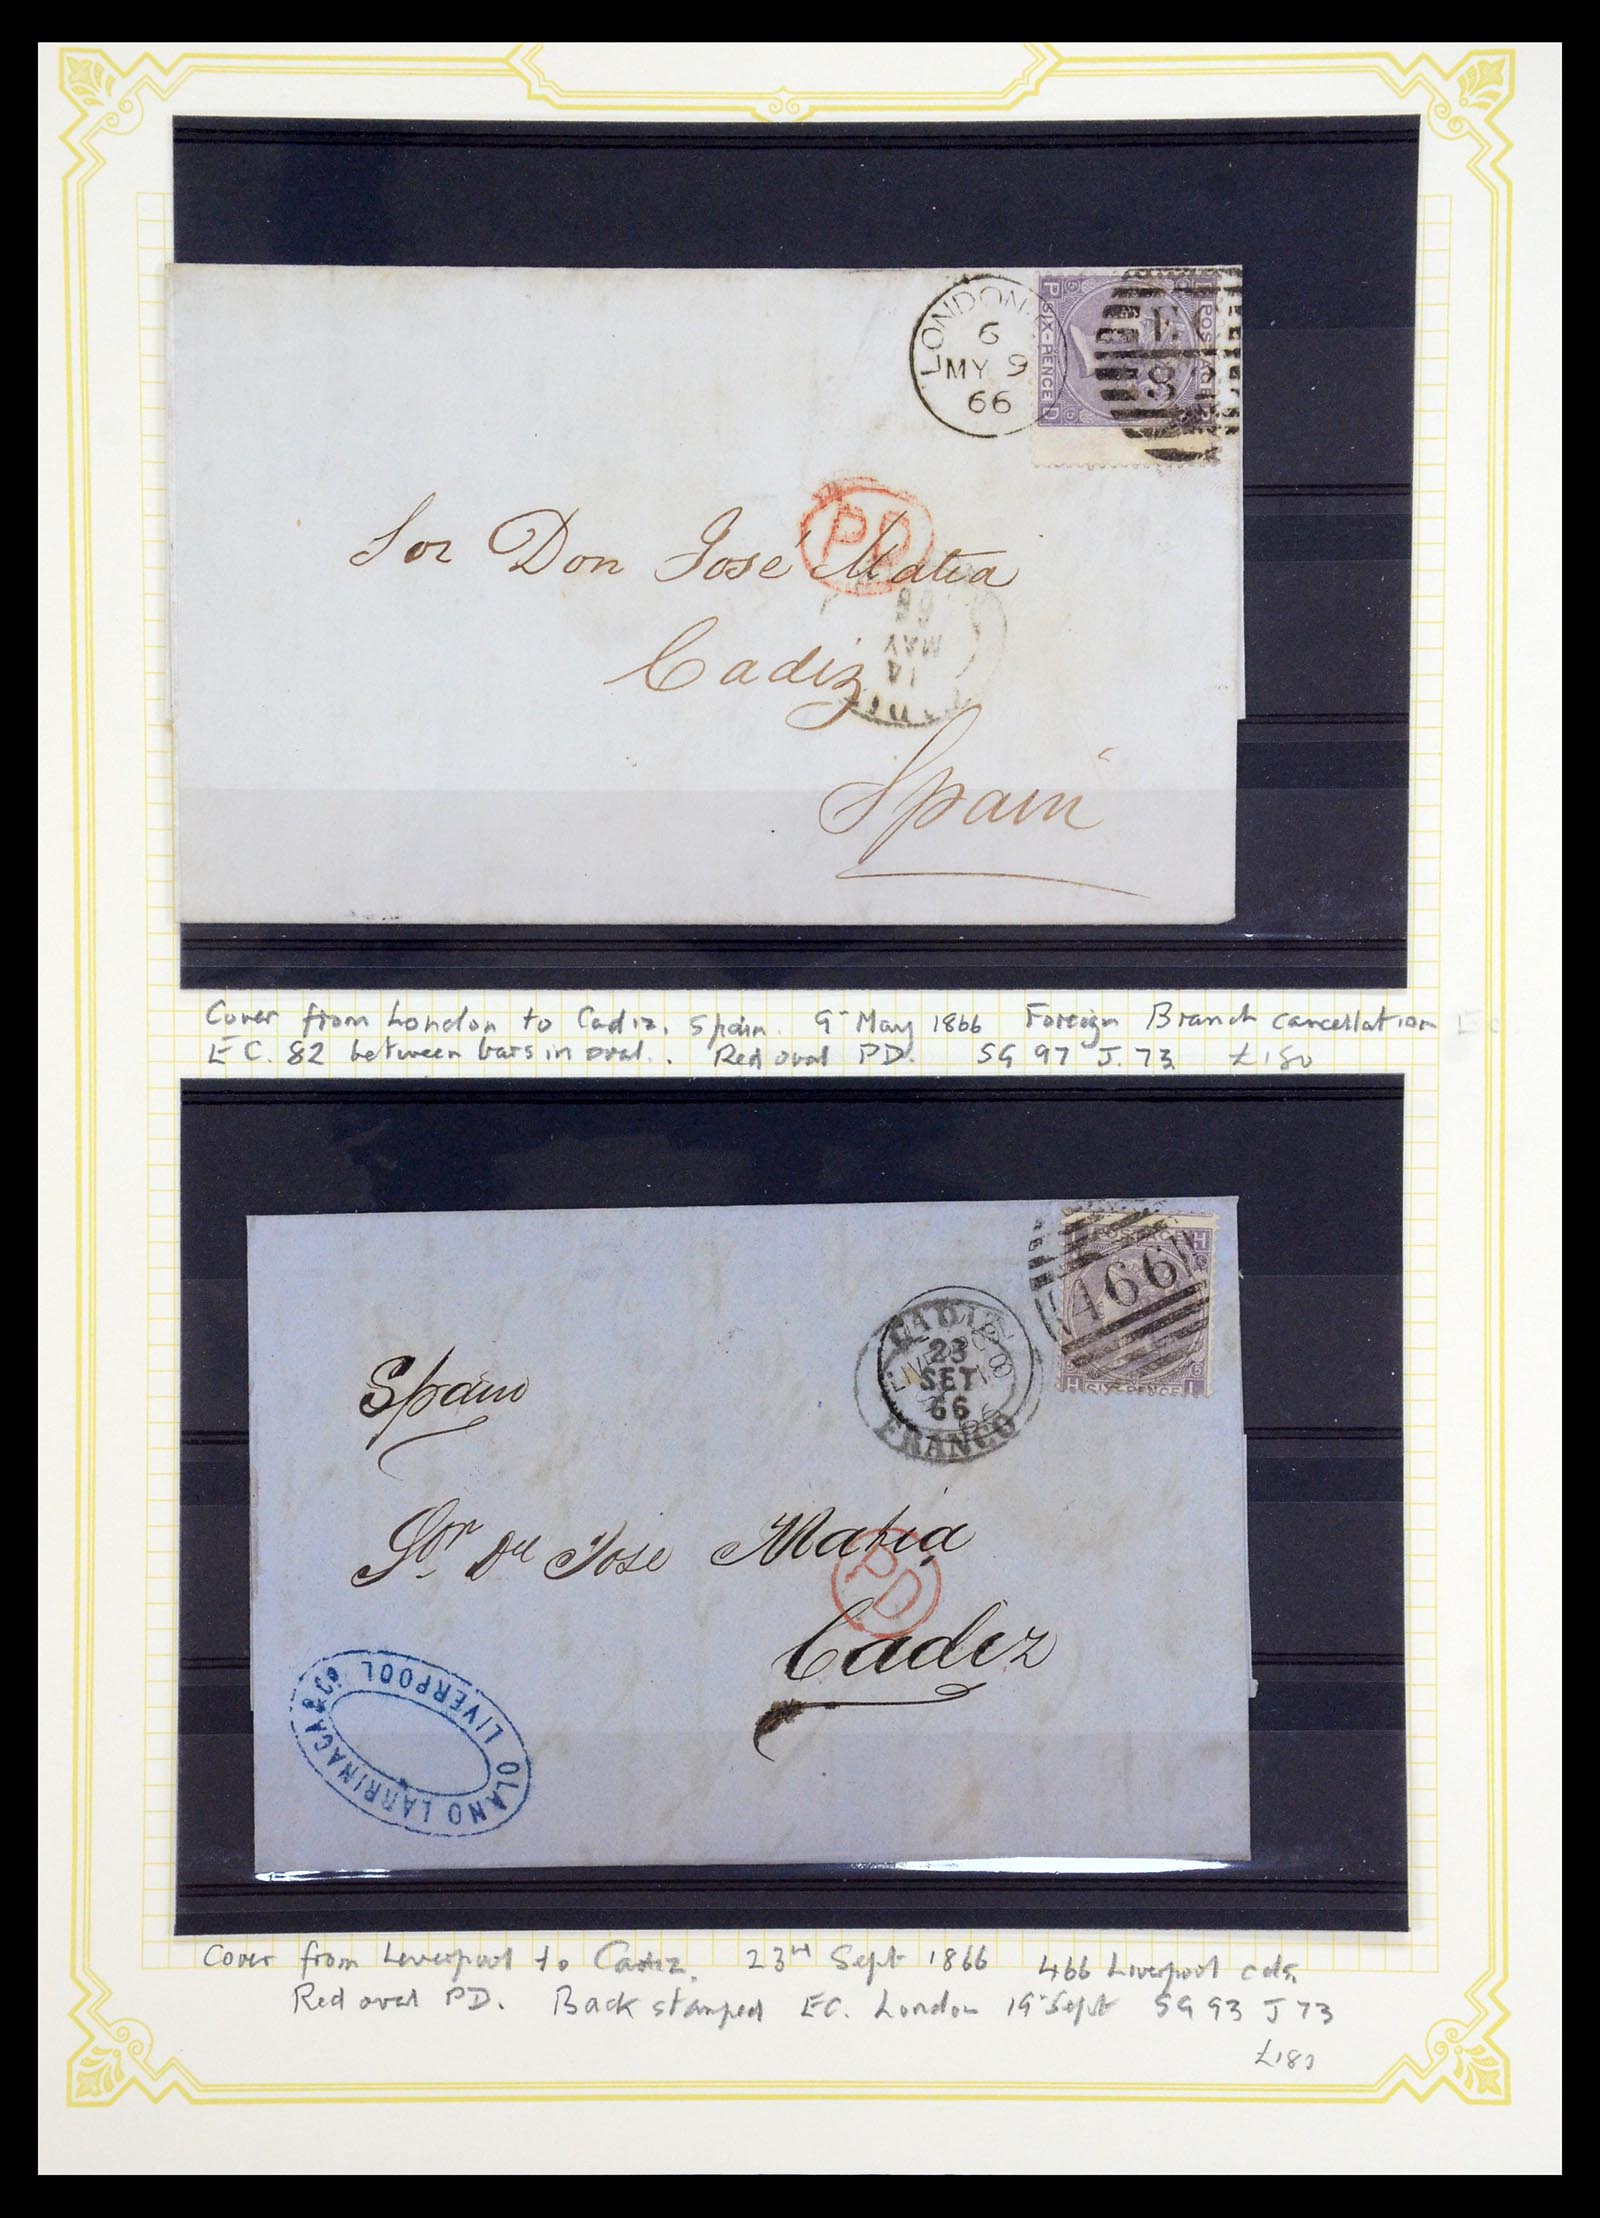 LONDON
6
MY 9
66
P POSTAGE
SIX-PENCE D
EC
8
PD
Sor Don José Matia
Cadiz
Spain
66
MAY
14
Cover from London to Cadiz, Spain. 9 May 1866 Foreign Branch cancellation EC
EC. 82 between bars in oval. Red oval PD. SG 97 J.73 £180
POSTAGE H
466
H SIX-PENCE L
CADIZ
23
SET
66
FRANCO
LIVERPOOL
18
66
Spain
Sor Dn Jose Matia
PD
Cadiz
OLANO LARRINAGA & Co
LIVERPOOL
Cover from Liverpool to Cadiz. 23rd Sept 1866 466 Liverpool cds.
Red oval PD. Back stamped EC. London 19 Sept SG 93 J 73
£180